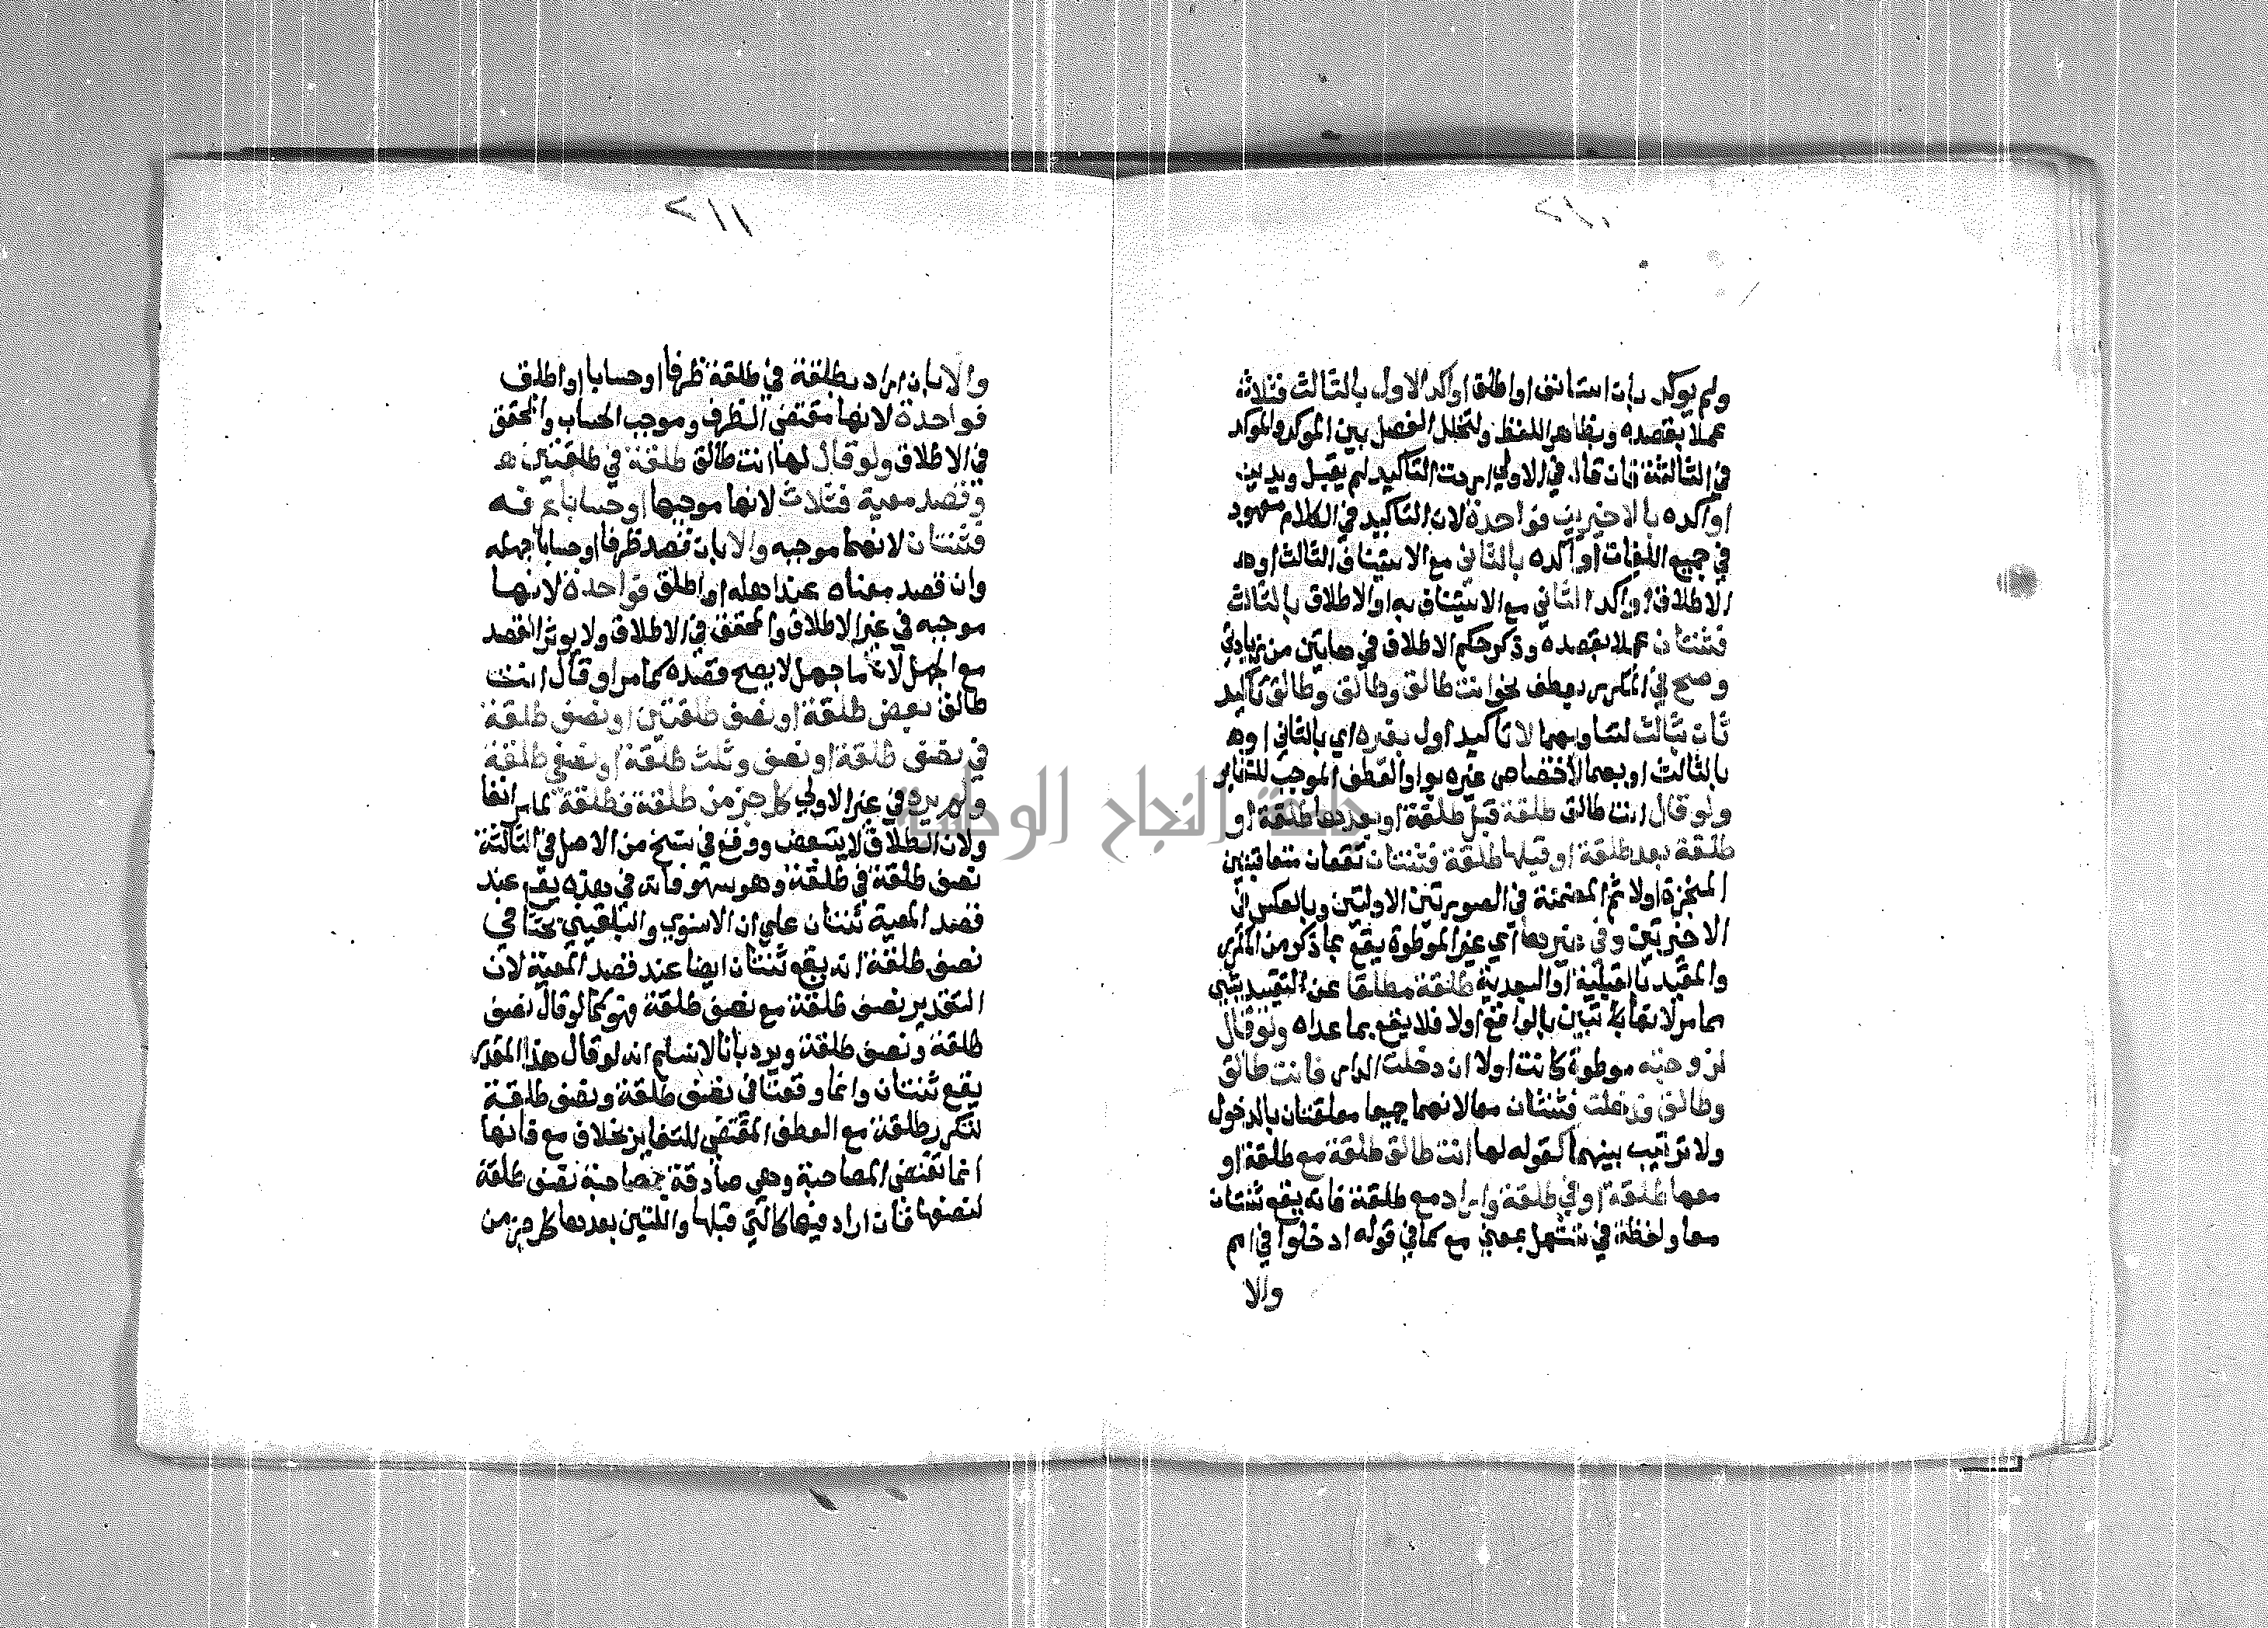 ٢١٠
ولم يوكد بان استانف او اطلق او اكد الاول بالثالث فثلاث
عملا بقصده وبظاهر اللفظ ولتخلل الفصل بين الموكد والموكد
في الثالثة فان قال في الاولي اردت التاكيد لم يقبل ويدين
او اكده بالاخيرين فواحدة لان التاكيد في الكلام معهود
في جميع اللغات او اكده بالثاني مع الاستيناف الثالث او مع
الاطلاق او اكد الثاني مع الاستيناف به او الاطلاق بالثالث
فثنتان عملا بقصده وذكر حكم الاطلاق في هاتين من زيادتي
وصح في المكرر بعطف نحو انت طالق وطالق وطالق تاكيد
ثان بثالث لتساويهما لا تاكيد اول بغيره اي بالثاني او
بالثالث او بهما لاختصاص غيره بواو العطف الموجب للتغاير
ولو قال انت طالق طلقة قبل طلقة او بعدها طلقة او
طلقة بعد طلقة او قبلها طلقة فثنتان تقعان متعاقبتين
المنجزة اولا ثم المضمنة في الصورتين الاولتين وبالعكس في
الاخيرتين وفي غيرها اي غير الموطوة يقع بما ذكر من المكرر
والمقيد بالقبلية او البعدية طلقة مطلقا عن التقييد بشي
مما مر لانها تبين بالواقع اولا فلا يقع بما عداه ولو قال
لزوجته موطوة كانت اولا ان دخلت الدار فانت طالق
وطالق فدخلت فثنتان معا لانهما جميعا معلقتان بالدخول
ولا ترتيب بينهما كقوله لها انت طالق طلقة مع طلقة او
معها طلقة او في طلقة واراد مع طلقة فانه يقع ثنتان
معا ولفظة في تستعمل بمعني مع كما في قوله ادخلوا في امم
والا
٢١١
والا بان اراد بطلقة في طلقة ظرفا او حسابا او اطلق
فواحدة لانها مقتضى الظرف وموجب الحساب والمحقق
في الاطلاق ولو قال لها انت طالق طلقة في طلقتين
وقصد معية فثلاث لانها موجبها او حسابا عرفه
فثنتان لانهما موجبه والا بان قصد ظرفا او حسابا جهله
وان قصد معناه عند اهله او اطلق فواحدة لانها
موجبه في غير الاطلاق والمحقق في الاطلاق ولا يوثر القصد
مع الجهل لان ما جهل لا يصح قصده كما مر او قال انت
طالق بعض طلقة او نصف طلقتين او نصف طلقة
في نصف طلقة او نصف وثلث طلقة او نصفي طلقة
ولم يرد في غير الاولي كل جزء من طلقة فطلقة لما مر انفا
ولان الطلاق لا يتبعض ووقع في نسخ من الاصل في الثالثة
نصف طلقة في طلقة وهو سهو فانه في هذه يقع عند
قصد المعية ثنتان علي ان الاسنوي والبلقيني بحثا في
نصف طلقة انه يقع ثنتان ايضا عند قصد المعية لان
التقدير نصف طلقة مع نصف طلقة فهو كما لو قال نصف
طلقة ونصف طلقة ويرد بانا لا نسلم انه لو قال هذا المقدر
يقع ثنتان وانما وقعتا في نصف طلقة ونصف طلقة
لتكرر طلقة مع العطف المقتضي للتغاير بخلاف مع فانها
انما تقتضي المصاحبة وهي صادقة بمصاحبة نصف طلقة
لنصفها فان اراد فيما كالتي قبلها واللتين بعدها كل جزء من